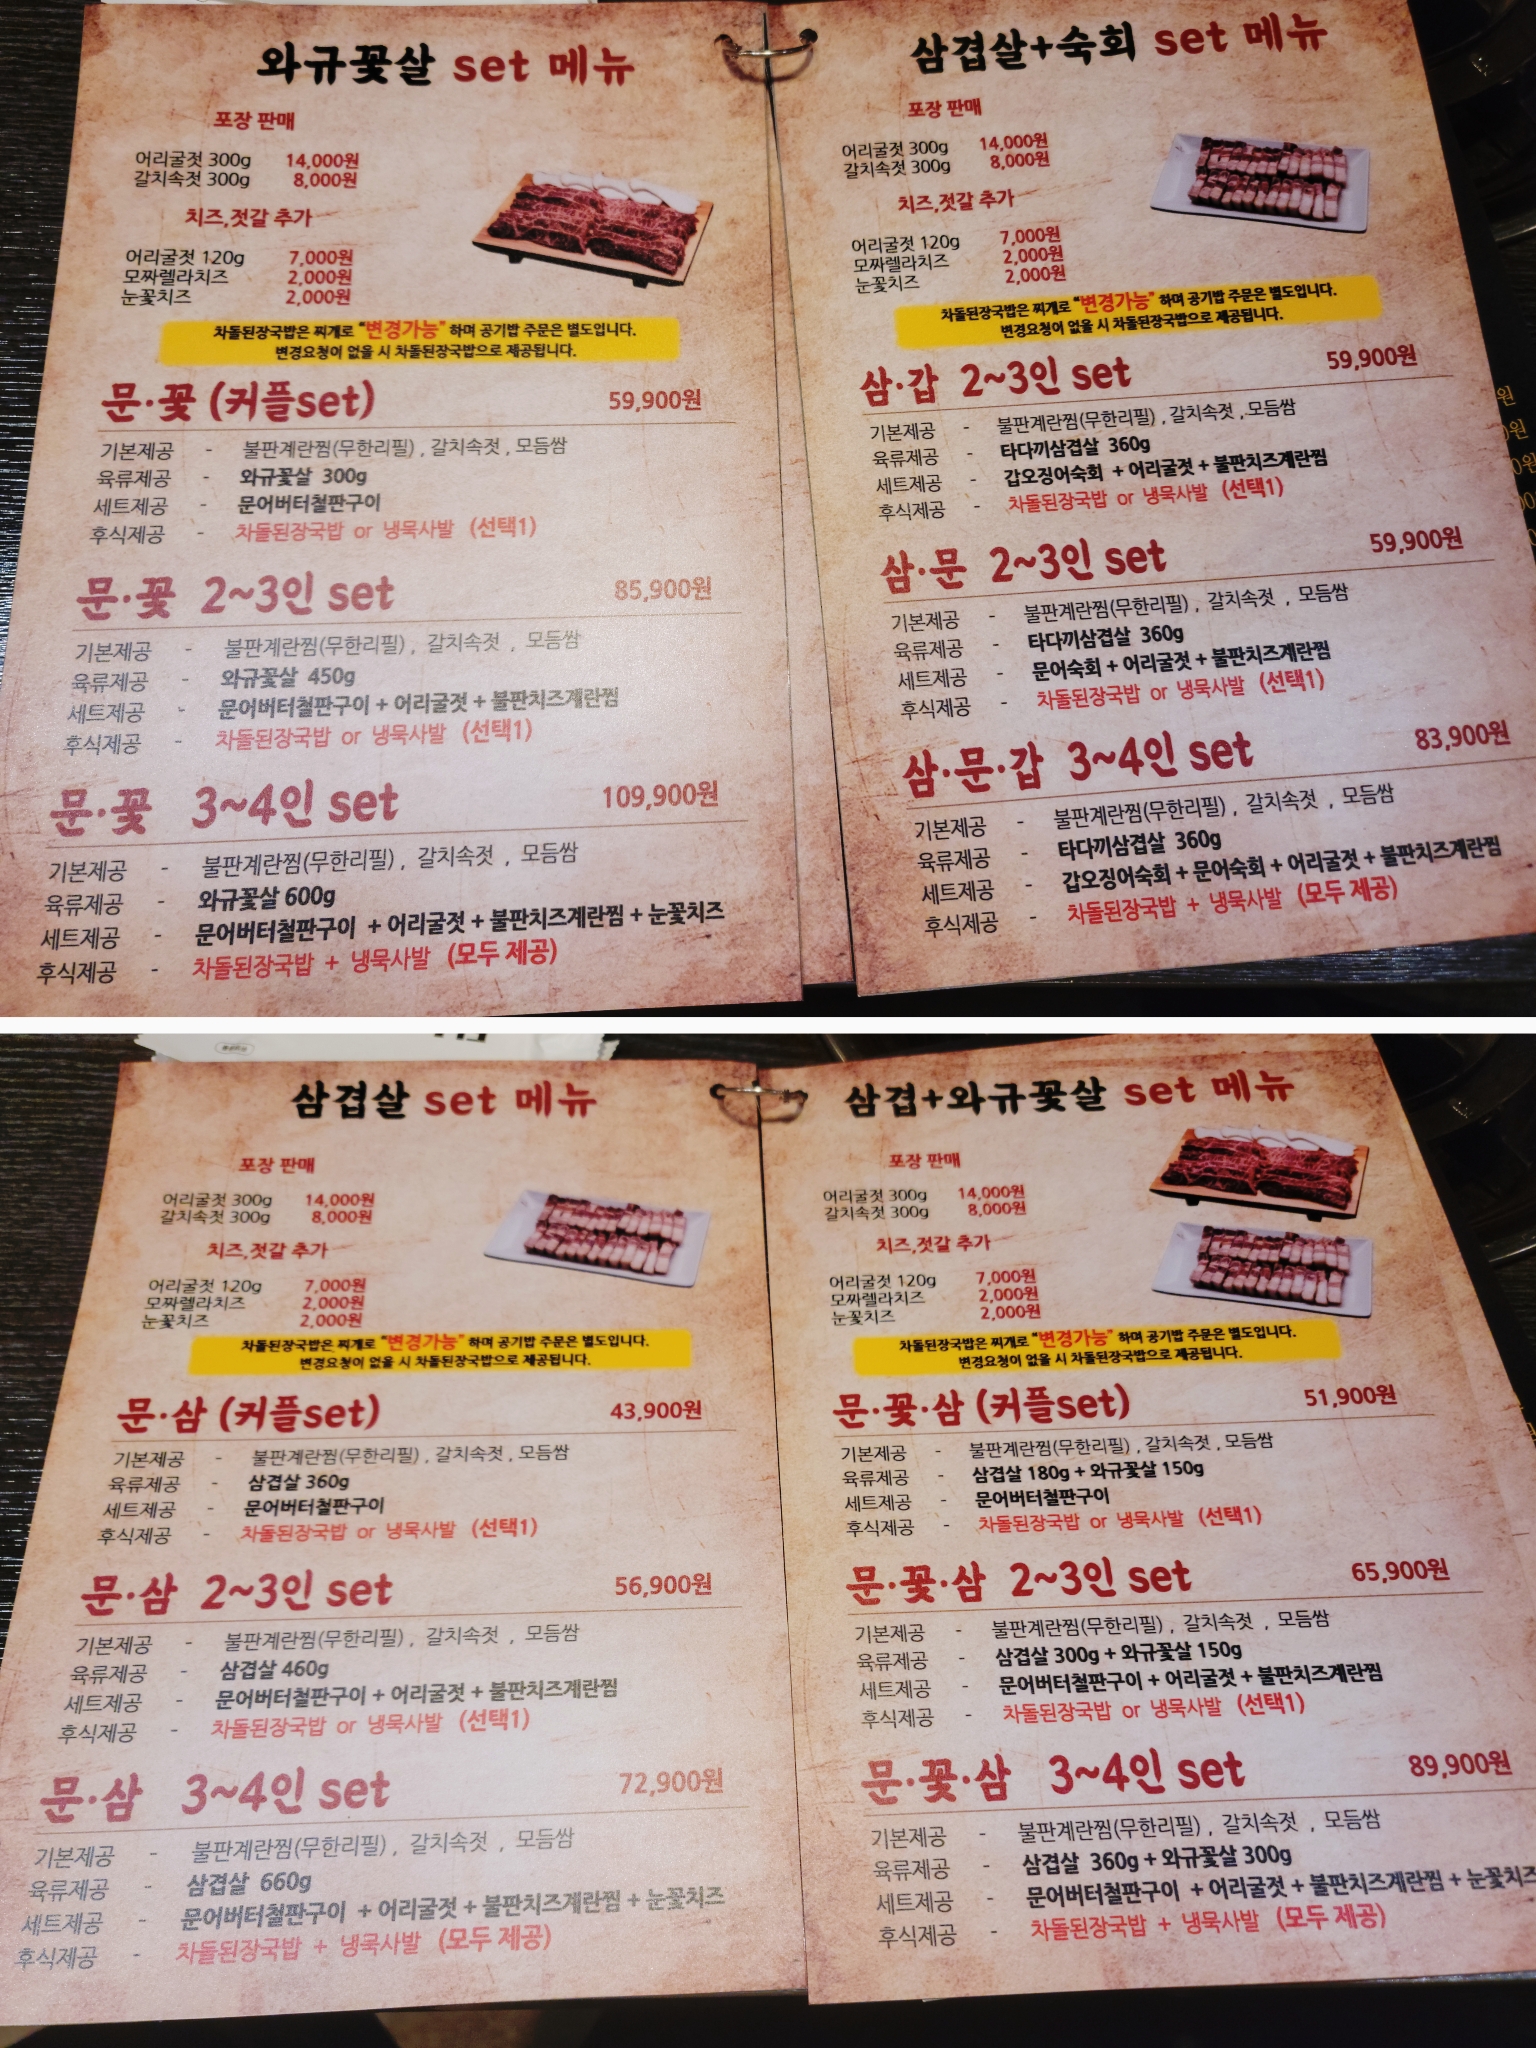 와규꽃살 set 메뉴
포장 판매
어리굴젓 300g 14,000원
갈치속젓 300g 8,000원
치즈,젓갈 추가
어리굴젓 120g 7,000원
모짜렐라치즈 2,000원
눈꽃치즈 2,000원
차돌된장국밥은 찌개로 "변경가능" 하며 공기밥 주문은 별도입니다.
변경요청이 없을 시 차돌된장국밥으로 제공됩니다.
문·꽃 (커플set) 59,900원
기본제공 - 불판계란찜(무한리필) , 갈치속젓 , 모듬쌈
육류제공 - 와규꽃살 300g
세트제공 - 문어버터철판구이
후식제공 - 차돌된장국밥 or 냉묵사발 (선택1)
문·꽃 2~3인 set 85,900원
기본제공 - 불판계란찜(무한리필) , 갈치속젓 , 모듬쌈
육류제공 - 와규꽃살 450g
세트제공 - 문어버터철판구이 + 어리굴젓 + 불판치즈계란찜
후식제공 - 차돌된장국밥 or 냉묵사발 (선택1)
문·꽃 3~4인 set 109,900원
기본제공 - 불판계란찜(무한리필) , 갈치속젓 , 모듬쌈
육류제공 - 와규꽃살 600g
세트제공 - 문어버터철판구이 + 어리굴젓 + 불판치즈계란찜 + 눈꽃치즈
후식제공 - 차돌된장국밥 + 냉묵사발 (모두 제공)
삼겹살+숙회 set 메뉴
포장 판매
어리굴젓 300g 14,000원
갈치속젓 300g 8,000원
치즈,젓갈 추가
어리굴젓 120g 7,000원
모짜렐라치즈 2,000원
눈꽃치즈 2,000원
차돌된장국밥은 찌개로 "변경가능" 하며 공기밥 주문은 별도입니다.
변경요청이 없을 시 차돌된장국밥으로 제공됩니다.
삼·갑 2~3인 set 59,900원
기본제공 - 불판계란찜(무한리필) , 갈치속젓 , 모듬쌈
육류제공 - 타다끼삼겹살 360g
세트제공 - 갑오징어숙회 + 어리굴젓 + 불판치즈계란찜
후식제공 - 차돌된장국밥 or 냉묵사발 (선택1)
삼·문 2~3인 set 59,900원
기본제공 - 불판계란찜(무한리필) , 갈치속젓 , 모듬쌈
육류제공 - 타다끼삼겹살 360g
세트제공 - 문어숙회 + 어리굴젓 + 불판치즈계란찜
후식제공 - 차돌된장국밥 or 냉묵사발 (선택1)
삼·문·갑 3~4인 set 83,900원
기본제공 - 불판계란찜(무한리필) , 갈치속젓 , 모듬쌈
육류제공 - 타다끼삼겹살 360g
세트제공 - 갑오징어숙회 + 문어숙회 + 어리굴젓 + 불판치즈계란찜
후식제공 - 차돌된장국밥 + 냉묵사발 (모두 제공)
삼겹살 set 메뉴
포장 판매
어리굴젓 300g 14,000원
갈치속젓 300g 8,000원
치즈,젓갈 추가
어리굴젓 120g 7,000원
모짜렐라치즈 2,000원
눈꽃치즈 2,000원
차돌된장국밥은 찌개로 "변경가능" 하며 공기밥 주문은 별도입니다.
변경요청이 없을 시 차돌된장국밥으로 제공됩니다.
문·삼 (커플set) 43,900원
기본제공 - 불판계란찜(무한리필) , 갈치속젓 , 모듬쌈
육류제공 - 삼겹살 360g
세트제공 - 문어버터철판구이
후식제공 - 차돌된장국밥 or 냉묵사발 (선택1)
문·삼 2~3인 set 56,900원
기본제공 - 불판계란찜(무한리필) , 갈치속젓 , 모듬쌈
육류제공 - 삼겹살 460g
세트제공 - 문어버터철판구이 + 어리굴젓 + 불판치즈계란찜
후식제공 - 차돌된장국밥 or 냉묵사발 (선택1)
문·삼 3~4인 set 72,900원
기본제공 - 불판계란찜(무한리필) , 갈치속젓 , 모듬쌈
육류제공 - 삼겹살 660g
세트제공 - 문어버터철판구이 + 어리굴젓 + 불판치즈계란찜 + 눈꽃치즈
후식제공 - 차돌된장국밥 + 냉묵사발 (모두 제공)
삼겹+와규꽃살 set 메뉴
포장 판매
어리굴젓 300g 14,000원
갈치속젓 300g 8,000원
치즈,젓갈 추가
어리굴젓 120g 7,000원
모짜렐라치즈 2,000원
눈꽃치즈 2,000원
차돌된장국밥은 찌개로 "변경가능" 하며 공기밥 주문은 별도입니다.
변경요청이 없을 시 차돌된장국밥으로 제공됩니다.
문·꽃·삼 (커플set) 51,900원
기본제공 - 불판계란찜(무한리필) , 갈치속젓 , 모듬쌈
육류제공 - 삼겹살 180g + 와규꽃살 150g
세트제공 - 문어버터철판구이
후식제공 - 차돌된장국밥 or 냉묵사발 (선택1)
문·꽃·삼 2~3인 set 65,900원
기본제공 - 불판계란찜(무한리필) , 갈치속젓 , 모듬쌈
육류제공 - 삼겹살 300g + 와규꽃살 150g
세트제공 - 문어버터철판구이 + 어리굴젓 + 불판치즈계란찜
후식제공 - 차돌된장국밥 or 냉묵사발 (선택1)
문·꽃·삼 3~4인 set 89,900원
기본제공 - 불판계란찜(무한리필) , 갈치속젓 , 모듬쌈
육류제공 - 삼겹살 360g + 와규꽃살 300g
세트제공 - 문어버터철판구이 + 어리굴젓 + 불판치즈계란찜 + 눈꽃치즈
후식제공 - 차돌된장국밥 + 냉묵사발 (모두 제공)